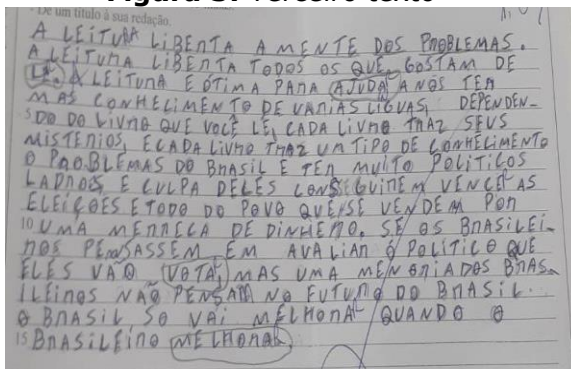 Figura 3: Terceiro texto
De um título à sua redação.
A LEITURA LIBERTA A MENTE DOS PROBLEMAS.
A LEITURA LIBERTA TODOS OS QUE GOSTAM DE
LE. A LEITURA E ÓTIMA PARA AJUDA A NOS TER
MAS CONHECIMENTO DE VARIAS LIGUAS, DEPENDEN-
5 DO DO LIVRO QUE VOCÊ LE, CADA LIVRO TRAZ SEUS
MISTERIOS, E CADA LIVRO TRAZ UM TIPO DE CONHECIMENTO
O PROBLEMAS DO BRASIL E TER MUITO POLITICOS
LADROIS E CULPA DELES CONSEGUIREM VENCER AS
ELEIÇOES E TODO DO POVO QUE SE VENDEM POR
10 UMA MERRECA DE DINHEIRO. SE OS BRASILEI-
ROS PENSASSEM EM AVALIAR O POLITICO QUE
ELES VAO VOTA, MAS UMA MENORIA DOS BRAS-
ILEIROS NÃO PENSAM NO FUTURO DO BRASIL.
O BRASIL SO VAI MELHORAR QUANDO O
15 BRASILEIRO MELHORAR.